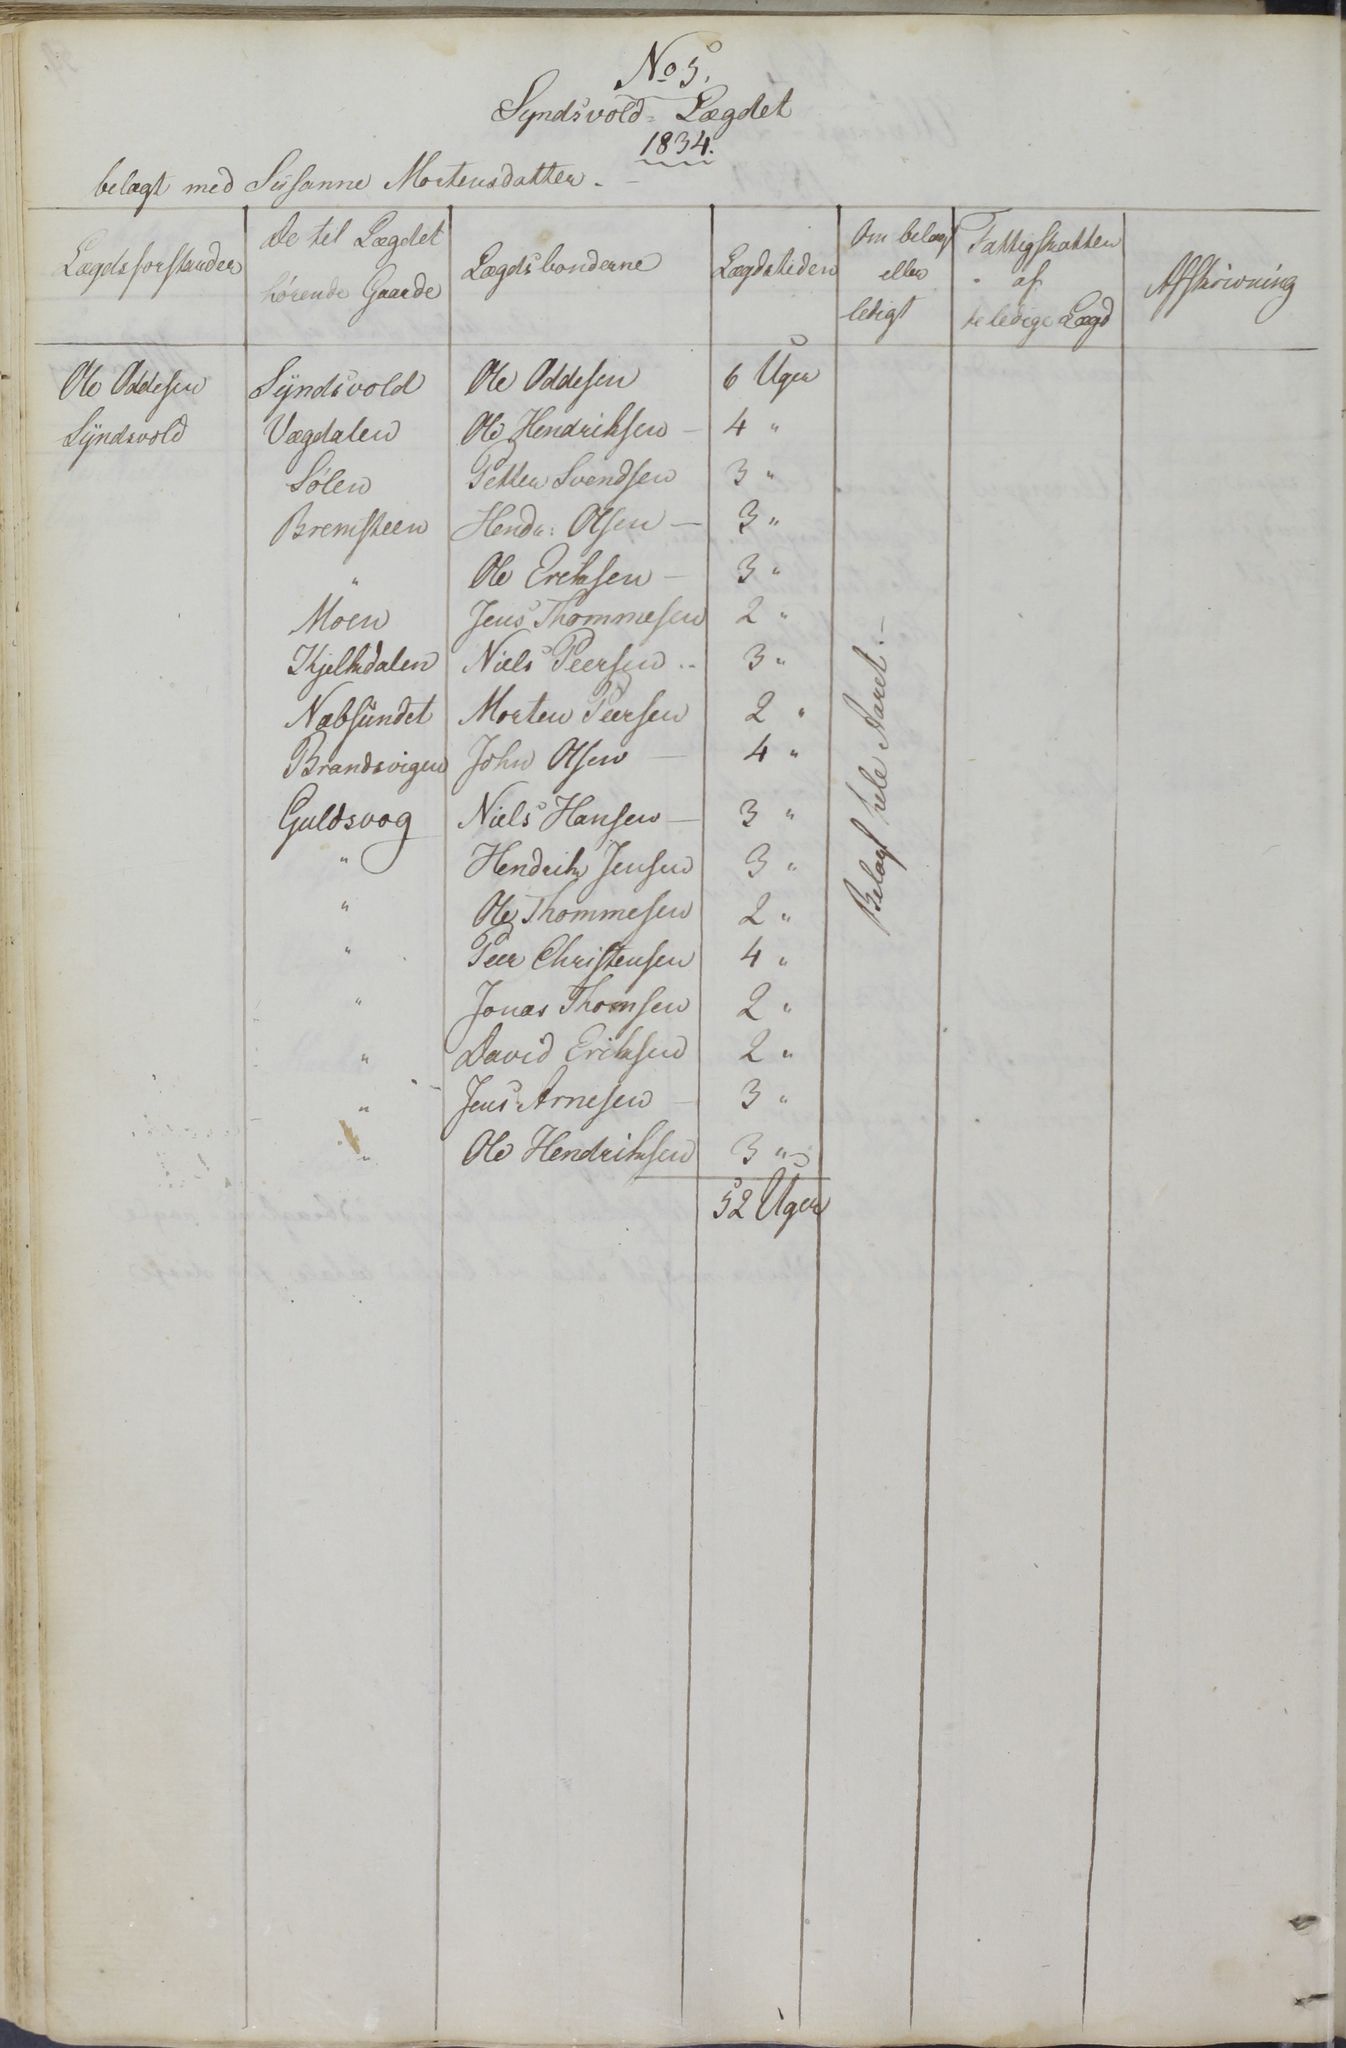 No 5.
Syndsvold-Lægdet
1834.
belagt med Susanne Mortensdatter.
Lægdsforstander | De til Lægdet hørende Gaarde | Lægdsbonderne | Lægdstiden | Om belagt eller ledigt | Fattigskatten af de ledige Lægd | Afskrivning
Ole Oddesen | Syndsvold | Ole Oddesen | 6 Uger
Syndsvold | Vægdalen | Ole Hendriksen — | 4 "
Sølen | Petter Svendsen | 3 "
Bremsteen | Hendr: Olsen — | 3 "
" | Ole Eriksen — | 3 "
Moen | Jens Thommesen | 2 "
Kjelkdalen | Niels Peersen .. | 3 "
Næbsundet | Morten Peersen | 2 "
Brandsvigen | John Olsen — | 4 "
Guldsvog | Niels Hansen — | 3 "
" | Hendrik Jensen | 3 "
" | Ole Thommesen | 2 "
" | Peer Christensen | 4 "
" | Jonas Thomsen | 2 "
" | David Eriksen | 2 "
" | Jens Arnesen — | 3 "
" | Ole Hendriksen | 3 "
52 Uger
Belagt hele Aaret.—